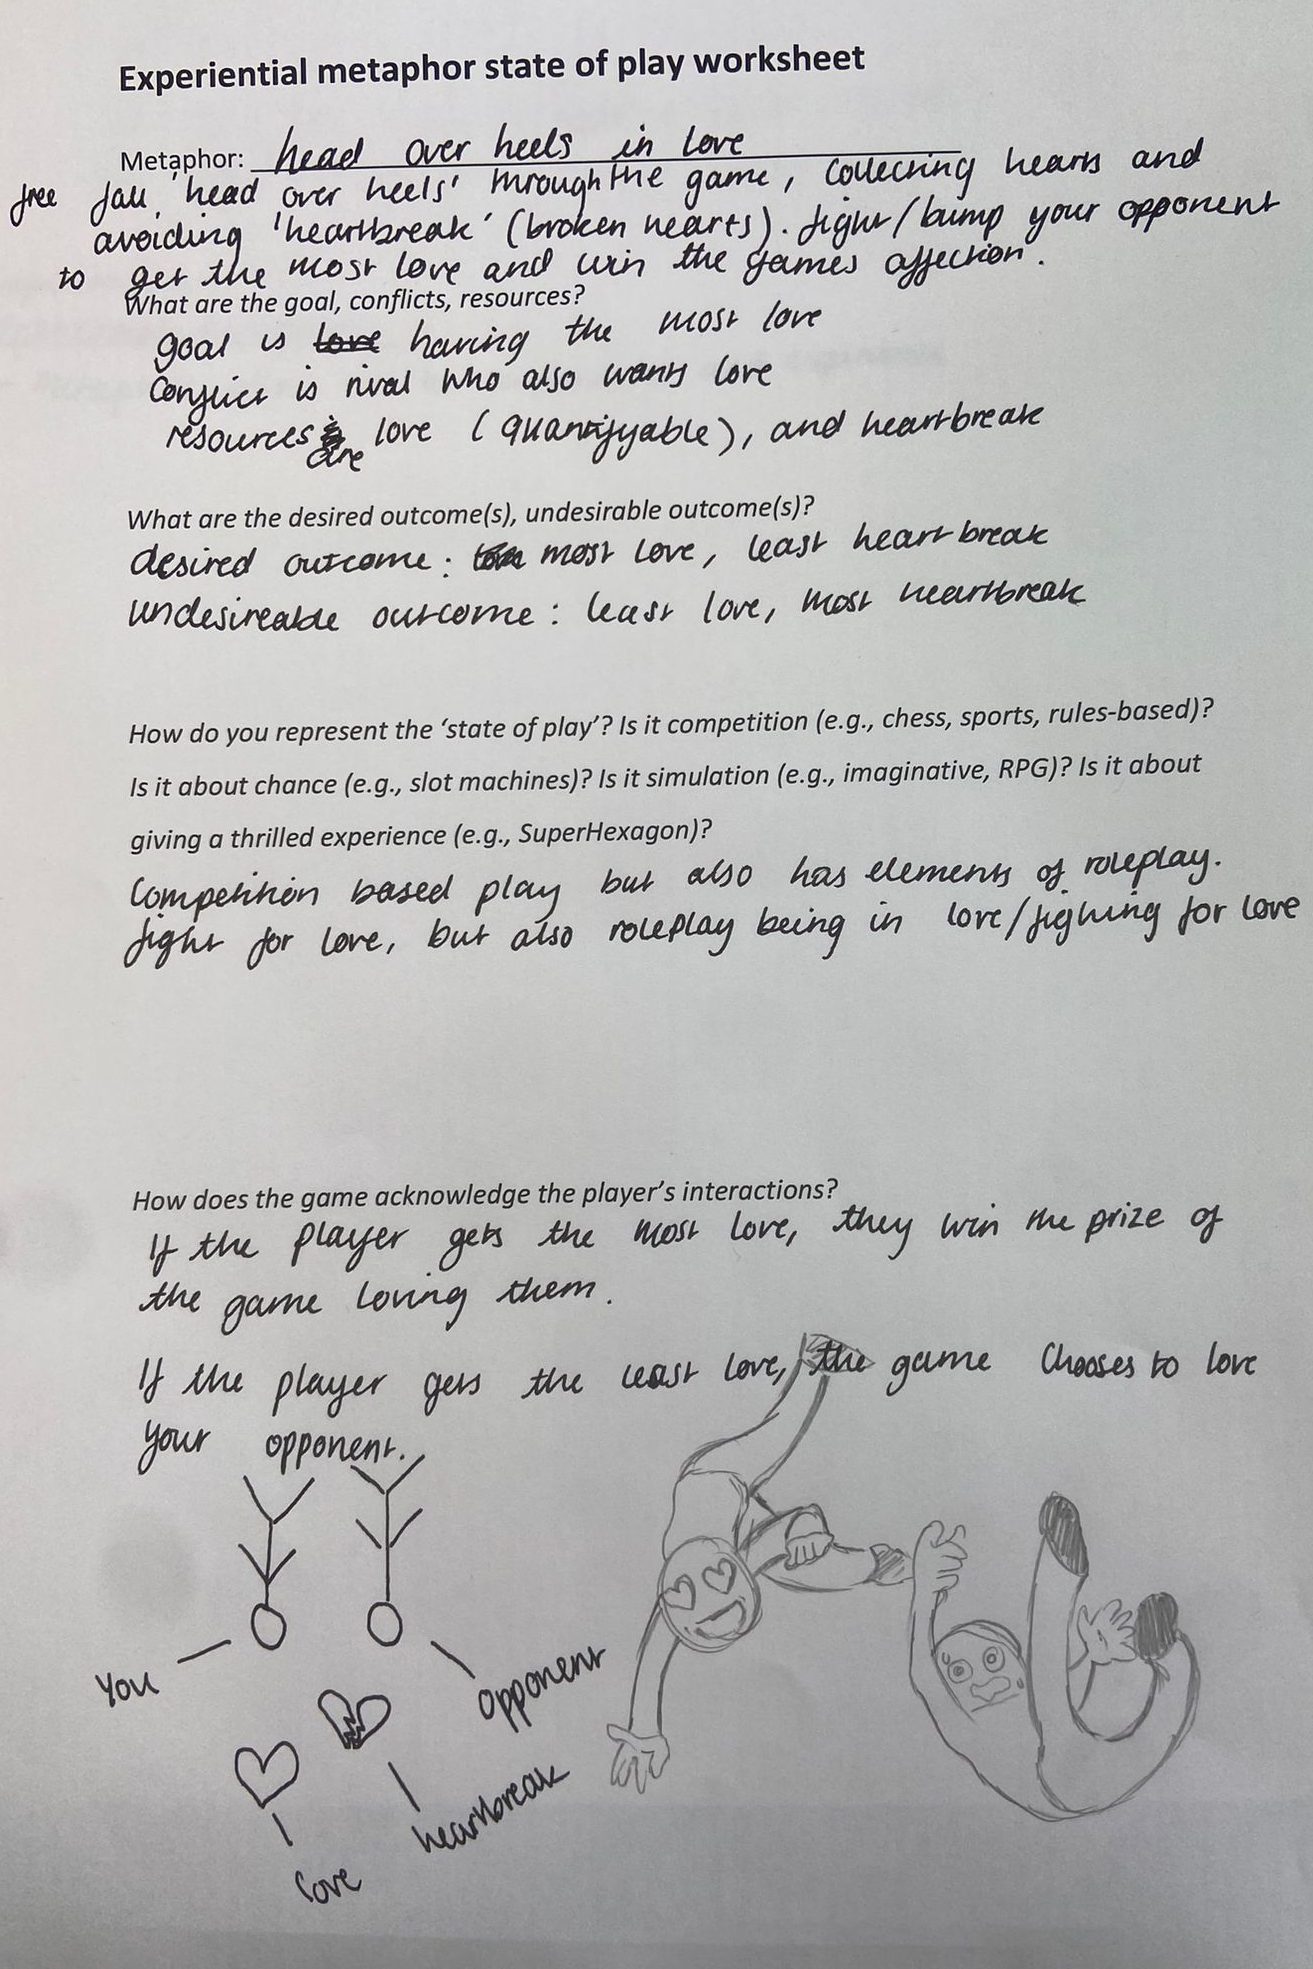 Experiential metaphor state of play worksheet
Metaphor: head over heels in love
free fall 'head over heels' through the game, collecting hearts and
avoiding 'heartbreak' (broken hearts). fight/bump your opponent
to get the most love and win the games affection.
What are the goal, conflicts, resources?
goal is love having the most love
Conflict is rival who also wants love
resources is are love (quantifyable), and heartbreak
What are the desired outcome(s), undesirable outcome(s)?
desired outcome: most love, least heartbreak
undesireable outcome: least love, most heartbreak
How do you represent the ‘state of play’? Is it competition (e.g., chess, sports, rules-based)?
Is it about chance (e.g., slot machines)? Is it simulation (e.g., imaginative, RPG)? Is it about
giving a thrilled experience (e.g., SuperHexagon)?
Competition based play but also has elements of roleplay.
fight for love, but also roleplay being in love/fighing for love
How does the game acknowledge the player’s interactions?
If the player gets the most love, they win the prize of
the game loving them.
If the player gets the least love, the game chooses to love
your opponent.
You
opponent
heartbreak
love